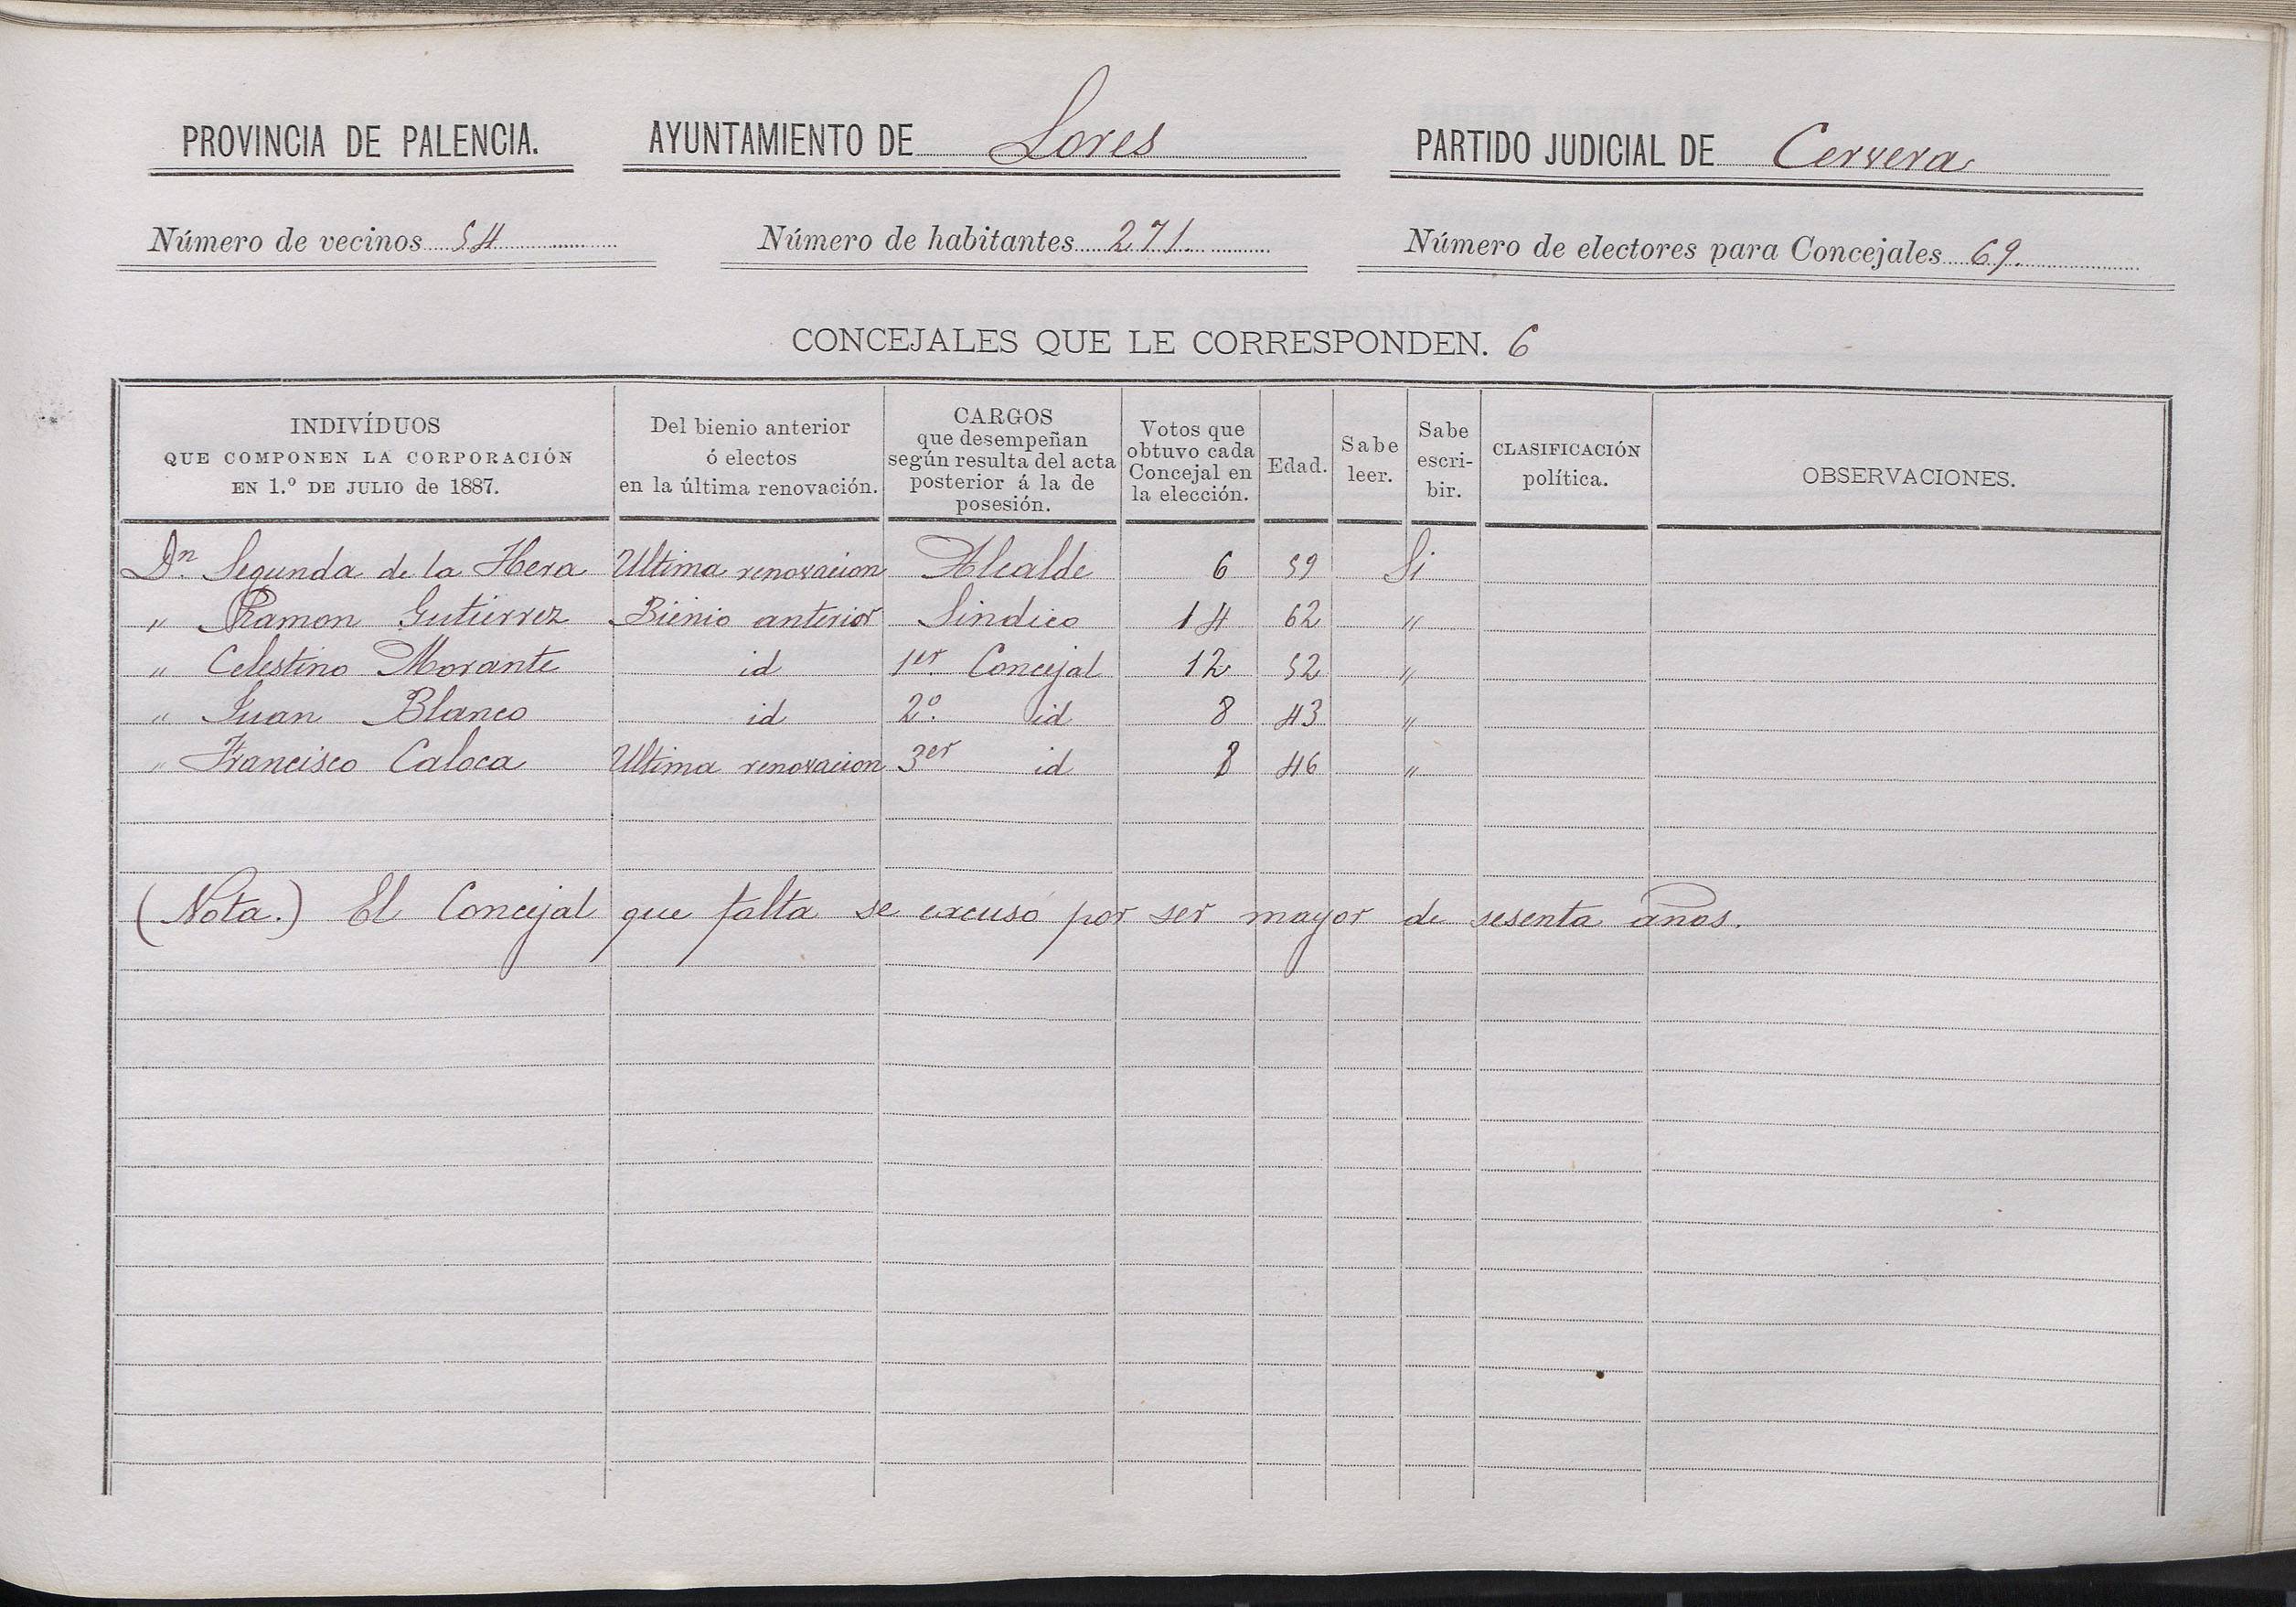 PROVINCIA DE PALENCIA. AYUNTAMIENTO DE Lores PARTIDO JUDICIAL DE Cervera
Número de vecinos 54 Número de habitantes 271 Número de electores para Concejales 69.
CONCEJALES QUE LE CORRESPONDEN. 6
INDIVÍDUOS QUE COMPONEN LA CORPORACIÓN EN 1.º DE JULIO de 1887. Del bienio anterior ó electos en la última renovación. CARGOS que desempeñan según resulta del acta posterior á la de posesión. Votos que obtuvo cada Concejal en la elección. Edad. Sabe leer. Sabe escri-bir. CLASIFICACIÓN política. OBSERVACIONES.
Dn. Segunda de la Hera Ultima renovacion Alcalde 6 59 Si
" Ramon Gutierrez Bienio anterior Sindico 14 62 "
" Celestino Morante id 1er Concejal 12 52 "
" Juan Blanco id 2º. id 8 43 "
" Francisco Caloca Ultima renovacion 3er id 8 46 "
(Nota.) El Concejal que falta se excuso por ser mayor de sesenta años.